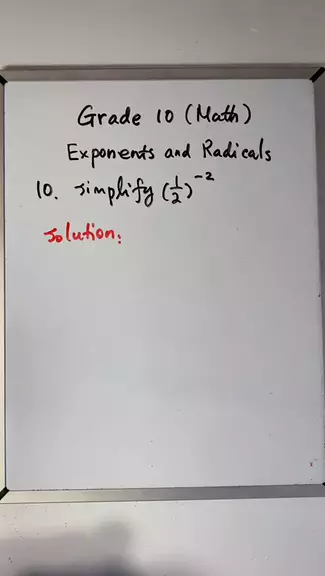 Grade 10 (Math)
Exponents and Radicals
10. Simplify (1/2)^-2
Solution: